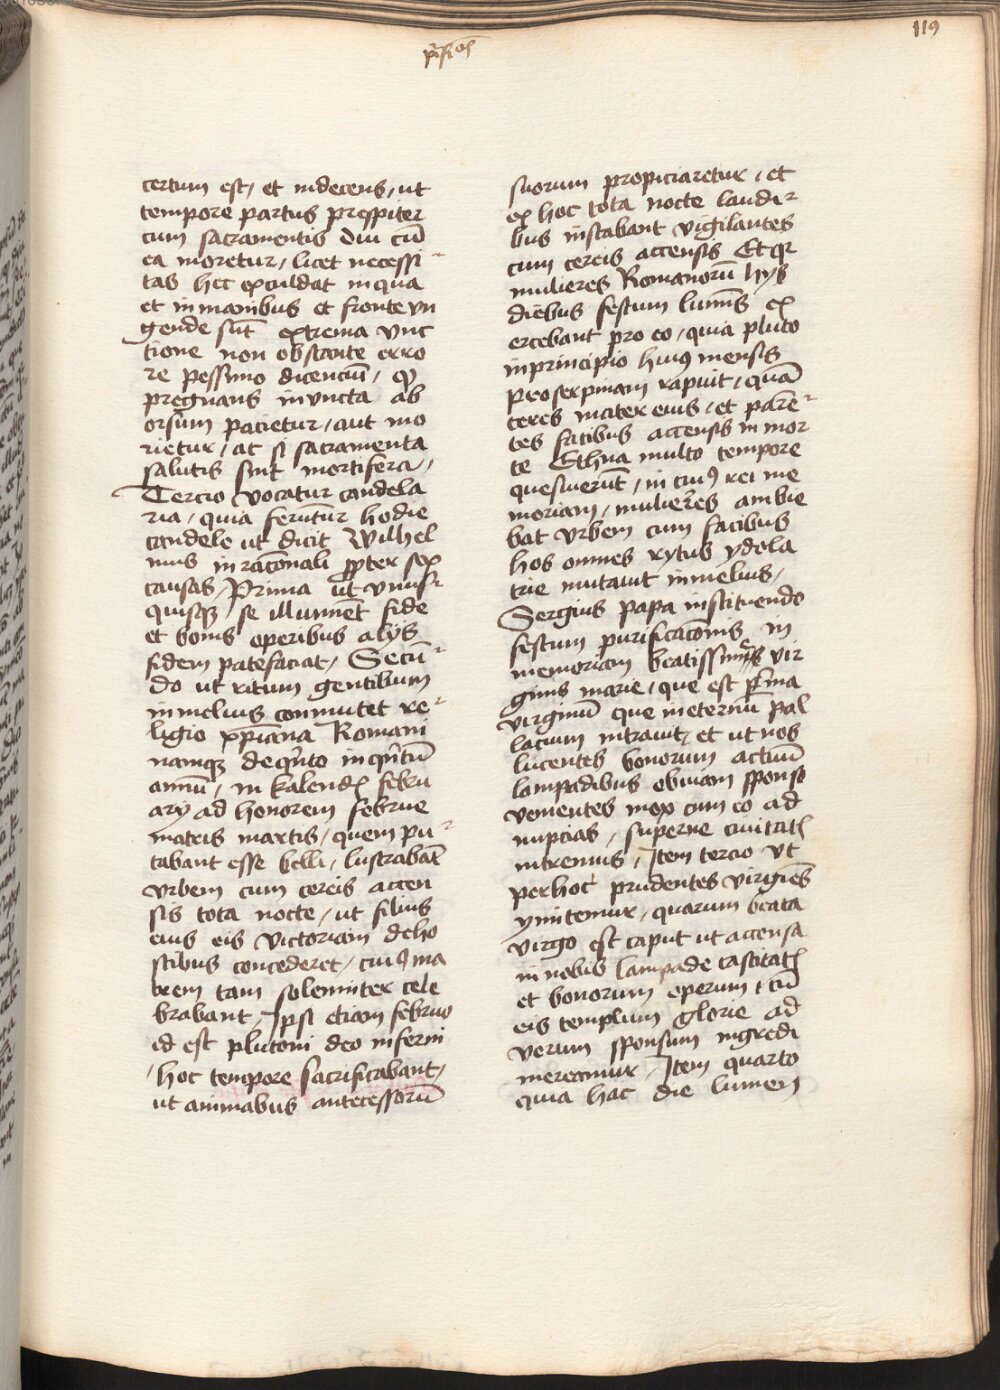 119
certum est, et indecens, ut
tempore partus prespiter
cum sacramentis diu cū
ea moretur, licet necessi
tas hec excludat in qua
et in manibus et fronte vn
gende sūt extrema vnc
tione non obstante erro
re pessimo dicenciū, qͻ
pregnans inuncta ab
orsum pacietur, aut mo
rietur, ac si sacramenta
salutis sint mortifera,
Tercio vocatur candela
ria, quia ferūtur hodie
candele ut dicit Wilhel
mus in racōnali propter sex
causas, Prima ut vnus
quisqꝫ se illuminet fide
et bonis operibus alijs
fidem patefaciat, Secū
do ut ritum gentilium
in melius conmutet re
ligio xp̄iana Romani
namqꝫ de qn̄to in qn̄tū
annū, in kalend febru
arij ad honorem februe
matris martis, quem pu
tabant esse belli, lustrabāt
vrbem cum cereis accen
sis tota nocte, ut filius
eius eis victoriam de ho
stibus concederet, cuiꝰ ma
trem tam solemniter cele
brabant, Ipsi etiam februo
id est plutoni deo inferni
hoc tempore sacrificabant,
ut animabus antecessorū
suorum propiciaretur, et
ex hoc tota nocte laudi
bus instabant vigilantes
cum cereis accensis Et qꝛ
mulieres Romanorū hijs
diebus festum lumīs ex
ercebant pro eo, quia pluto
in principio huiꝰ mensis
proserpinam rapuit, quā
ceres mater eius, et parē
tes facibus accensis in mon
te Ethna multo tempore
quesiuerūt, in cuiꝰ rei me
moriam, mulieres ambie
bat vrbem cum facibus
hos omnes rytus ydola
trie mutauit in melius,
Sergius papa instituendo
festum purificacōnis in
memoriam beatissime vir
ginis marie, que est prima
virginū que in eternū pal
lacium intrauit, et ut nos
lucentes bonorum actuū
lampadibus obuiam sponso
venientes mox cum eo ad
nupcias, superne ciuitatis
intremus, Item tercio vt
per hoc prudentes virgīes
ymitemur, quarum beata
virgo est caput ut accensa
in nobis lampade castitatis
et bonorum operum, cū
eis templum glorie ad
verum sponsum ingredi
mereamur, Item quarto
quia hac die lumen